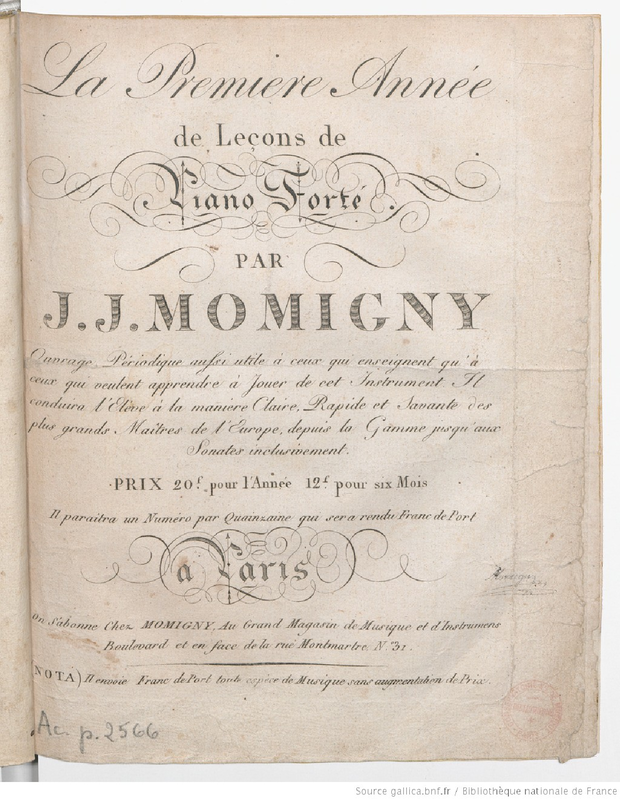 La Premiere Année
de Leçons de
Piano Forté.
PAR
J.J. MOMIGNY
Ouvrage Périodique aussi utile à ceux qui enseignent qu'à
ceux qui veulent apprendre à Jouer de cet Instrument Il
conduira l'Elève à la maniere Claire, Rapide et Savante des
plus grands Maîtres de l'Europe, depuis la Gamme jusqu'aux
Sonates inclusivement.
PRIX 20f. pour l'Année 12f pour six Mois
Il paraitra un Numéro par Quainzaine qui sera rendu Franc de Port
a Paris
On S'abonne Chez MOMIGNY, Au Grand Magasin de Musique et d'Instrumens
Boulevard et en face de la rue Montmartre, N° 31.
NOTA) Il envoie Franc de Port toute espèce de Musique sans augmentation de Prix.
Ac. p. 2566
Source gallica.bnf.fr / Bibliothèque nationale de France